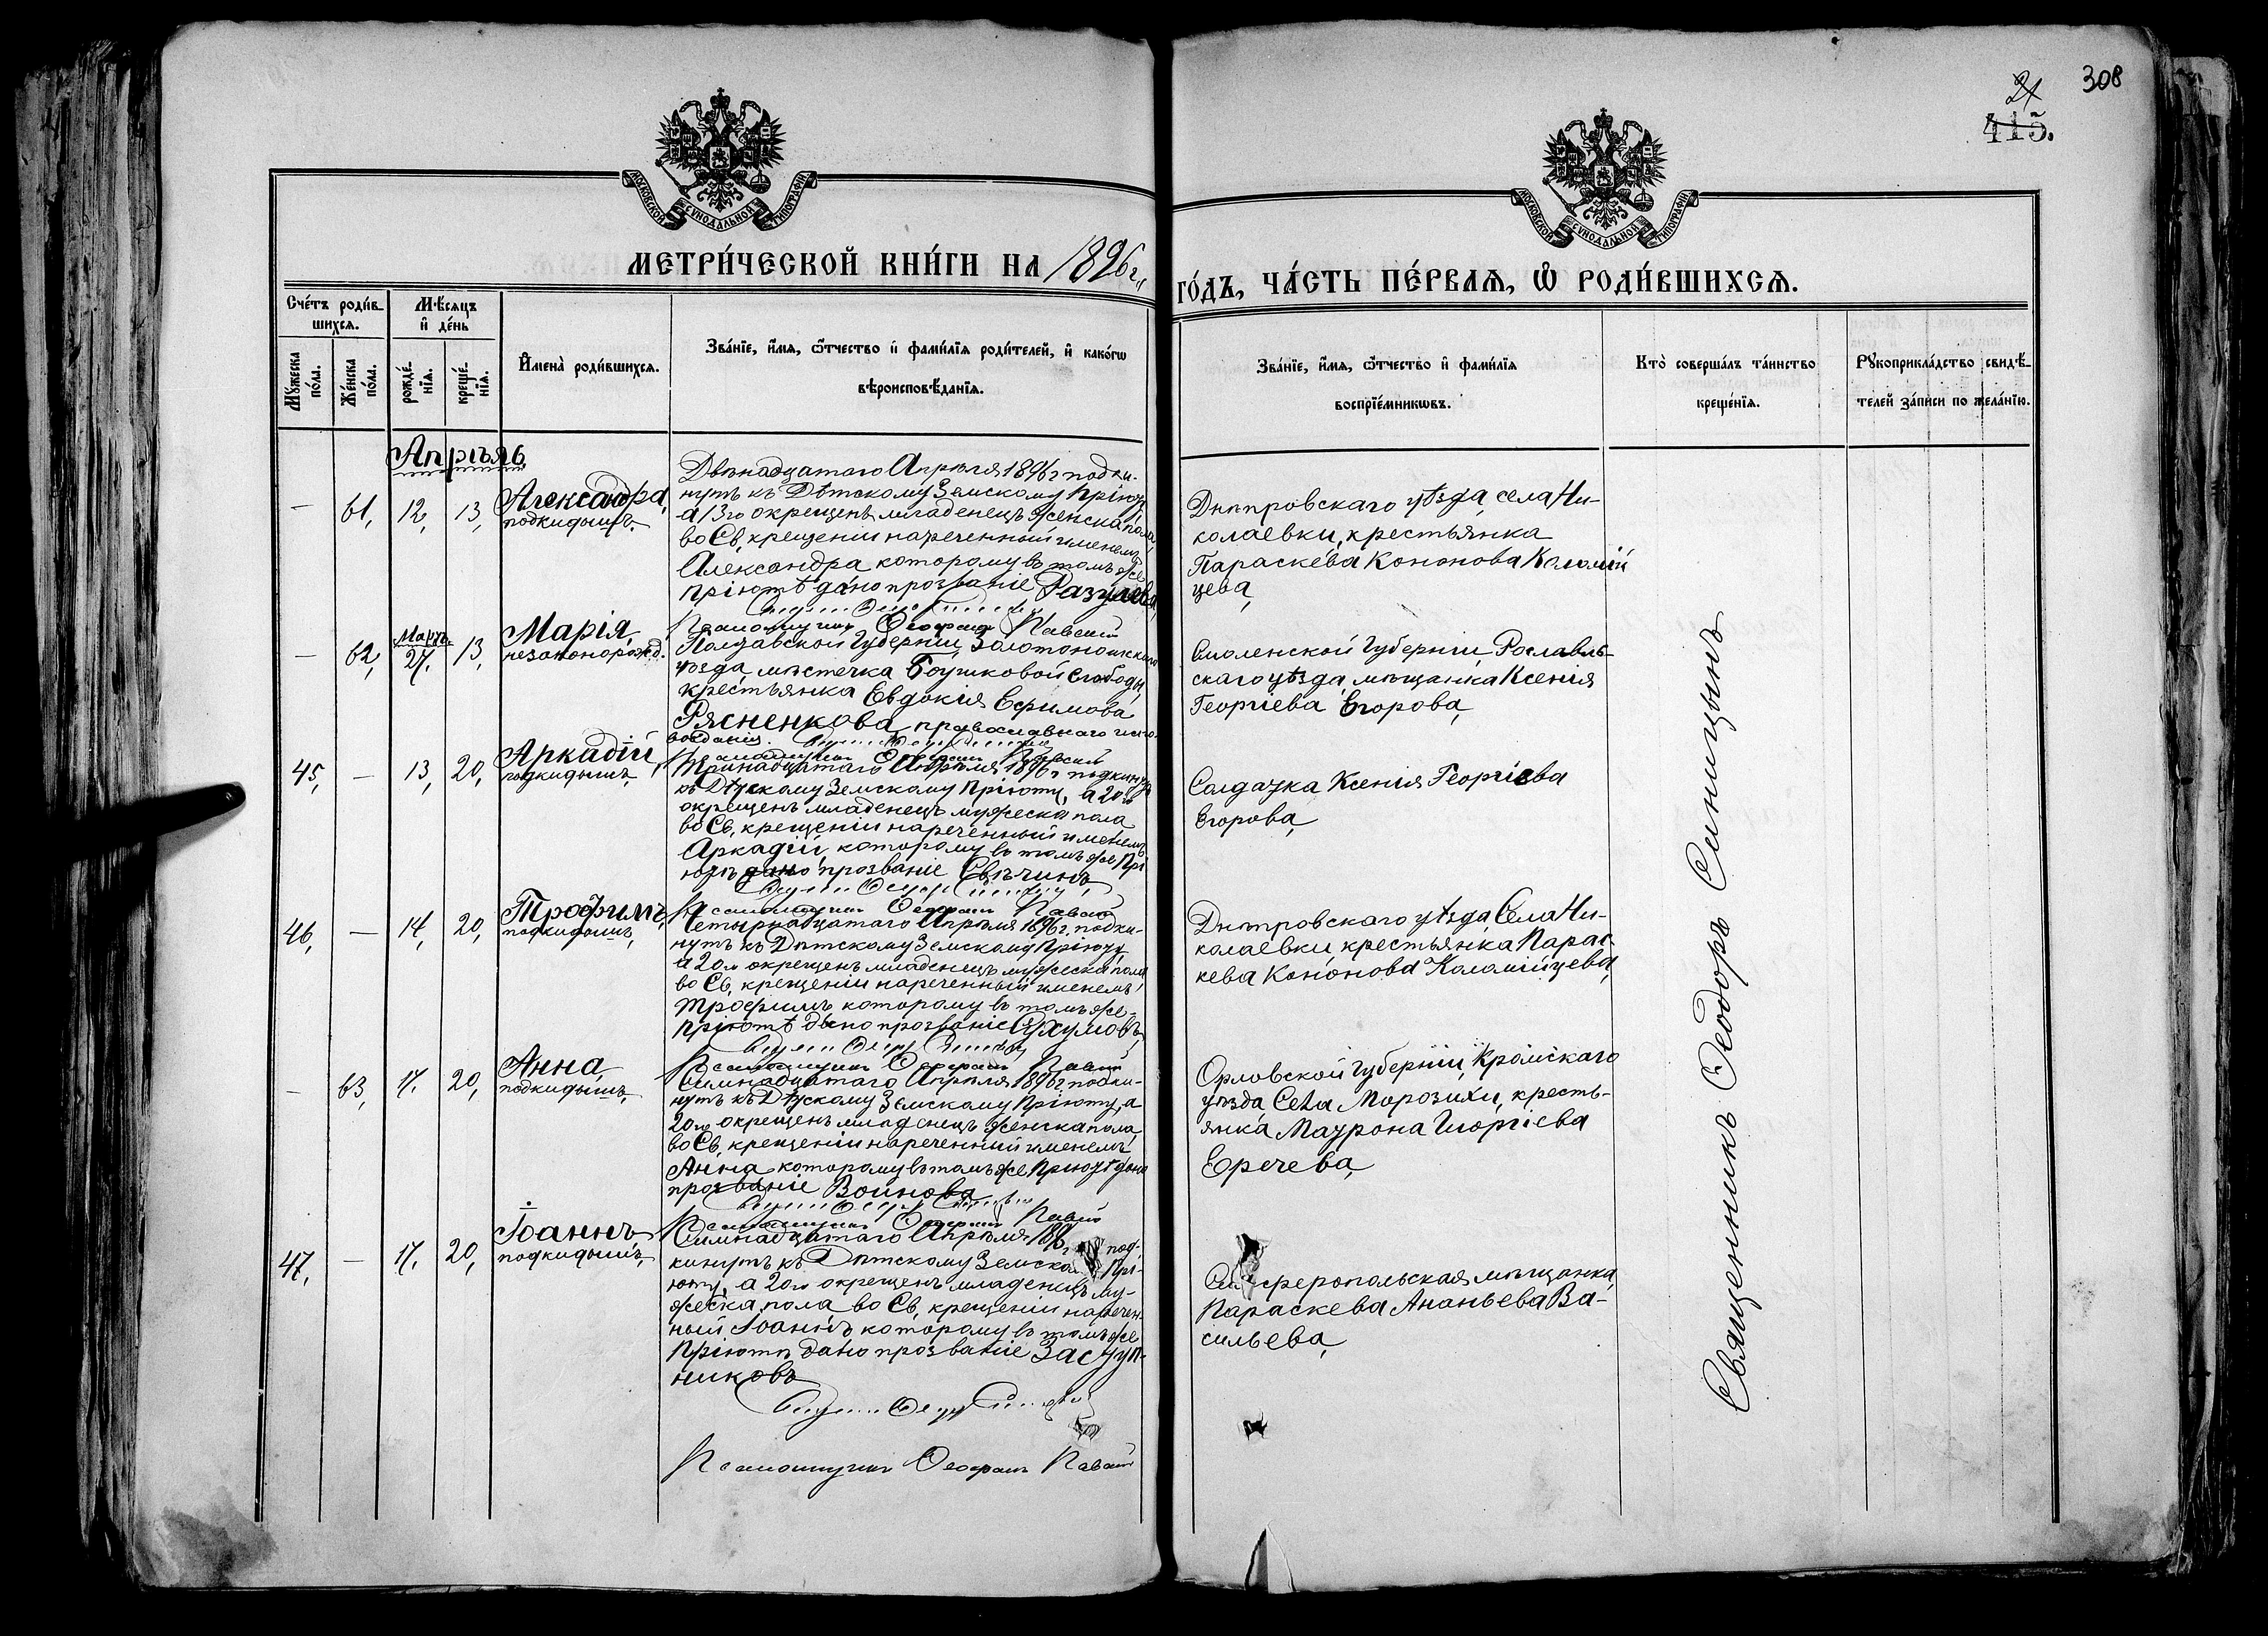 308
21
415.
МОСКОВСКОЙ СУНОДАЛЬНОЙ ТИПОГРАФІИ
МОСКОВСКОЙ СУНОДАЛЬНОЙ ТИПОГРАФІИ
МЕТРИ́ЧЕСКОЙ КНИ́ГИ НА 1896 г.
ГО́ДЪ, ЧА́СТЬ ПЕ́РВАѦ, Ѡ҆ РОДИ́ВШИХСѦ.
Сче́тъ роди́в-
шихсѧ.
Мѣ́сѧцъ
и҆ де́нь
Мꙋ́жеска
по́ла.
Же́нска
по́ла.
рожде́-
нїѧ.
креще́-
нїѧ.
И҆мена̀ роди́вшихсѧ.
Зва́нїе, и҆́мѧ, ѻ҆́тчество и҆ фами́лїѧ роди́телей, и҆ како́гѡ
вѣроисповѣ́данїѧ.
Зва́нїе, и҆́мѧ, ѻ҆́тчество и҆ фами́лїѧ
воспрїе́мникѡвъ.
Кто̀ соверша́лъ та́инство
креще́нїѧ.
Рꙋкоприкла́дство свидѣ́-
телей за́писи по жела́нїю.
Апрѣль
— 61, 12, 13, Александра,
подкидышъ.
Двѣнадцатаго Апрѣля 1896 г подки-
нутъ къ Дѣтскому Земскому Пріюту
а 13го окрещенъ младенецъ женска пола,
во Св, крещеніи нареченный именемъ
Александра которому въ томъ же
Пріютѣ дано прозваніе
Днѣпровскаго уѣзда, села Ни-
колаевки, крестьянка
Параскева Кононова Коломій
цева,
— 62, Мартъ 27. 13, Марія,
незаконорожд.
Полтавской Губерніи, Золотоношскаго
уѣзда, мѣстечка слободы,
крестьянка Евдокія Ефимова
Рясненкова, православнаго испо-
вѣданія.
Смоленской Губерніи, Рославль-
скаго уѣзда, мѣщанка Ксенія
Георгіева Егорова,
45, — 13, 20, Аркадій,
подкидышъ,
Тринадцатаго Апрѣля 1896 г подкинутъ
къ Дѣтскому Земскому Пріюту, а 20го
окрещенъ младенецъ мужеска пола
во Св, крещеніи нареченный именемъ
Аркадій, которому въ томъ же Прі
ютѣ дано прозваніе Свѣчинъ
Солдатка Ксенія Георгіева
Егорова,
46, — 14, 20, Трофимъ,
подкидышъ,
Четырнадцатаго Апрѣля 1896 г. подки-
нутъ къ Дѣтскому Земскому Пріюту,
а 20го окрещенъ младенецъ мужеска пола,
во Св, крещеніи нареченный именемъ
Трофимъ которому въ томъ же
Пріютѣ дано прозваніе Сухумовъ,
Днѣпровскаго уѣзда, Села Ни-
колаевки, крестьянка Парас-
кева Кононова Коломійцева,
— 63, 17. 20, Анна
подкидышъ,
Семнадцатаго Апрѣля 1896 г. подки-
нутъ къ Дѣтскому Земскому Пріюту, а
20го окрещенъ младенецъ женска пола,
во Св, крещеніи нареченный именемъ
Анна которому въ томъ же Пріютѣ дано
прозваніе Воинова
Орловской Губерніи, Кромскаго
уѣзда, Села Морозихи, кресть-
янка Матрона Георгіева
47, — 17. 20, Іоаннъ
подкидышъ,
Семнадцатаго Апрѣля 1896 г. под-
кинутъ къ Дѣтскому Земском Прі-
юту, а 20го окрещенъ младенецъ му-
жеска пола во Св, крещеніи наречен-
ный Іоаннъ которому въ томъ же
Пріютѣ дано прозваніе Заступ-
никовъ
Симферопольская мѣщанка,
Параскева Ананьева Ва-
сильева,
Псаломщикъ Павскій
Священникъ Ѳеодоръ Синицынъ